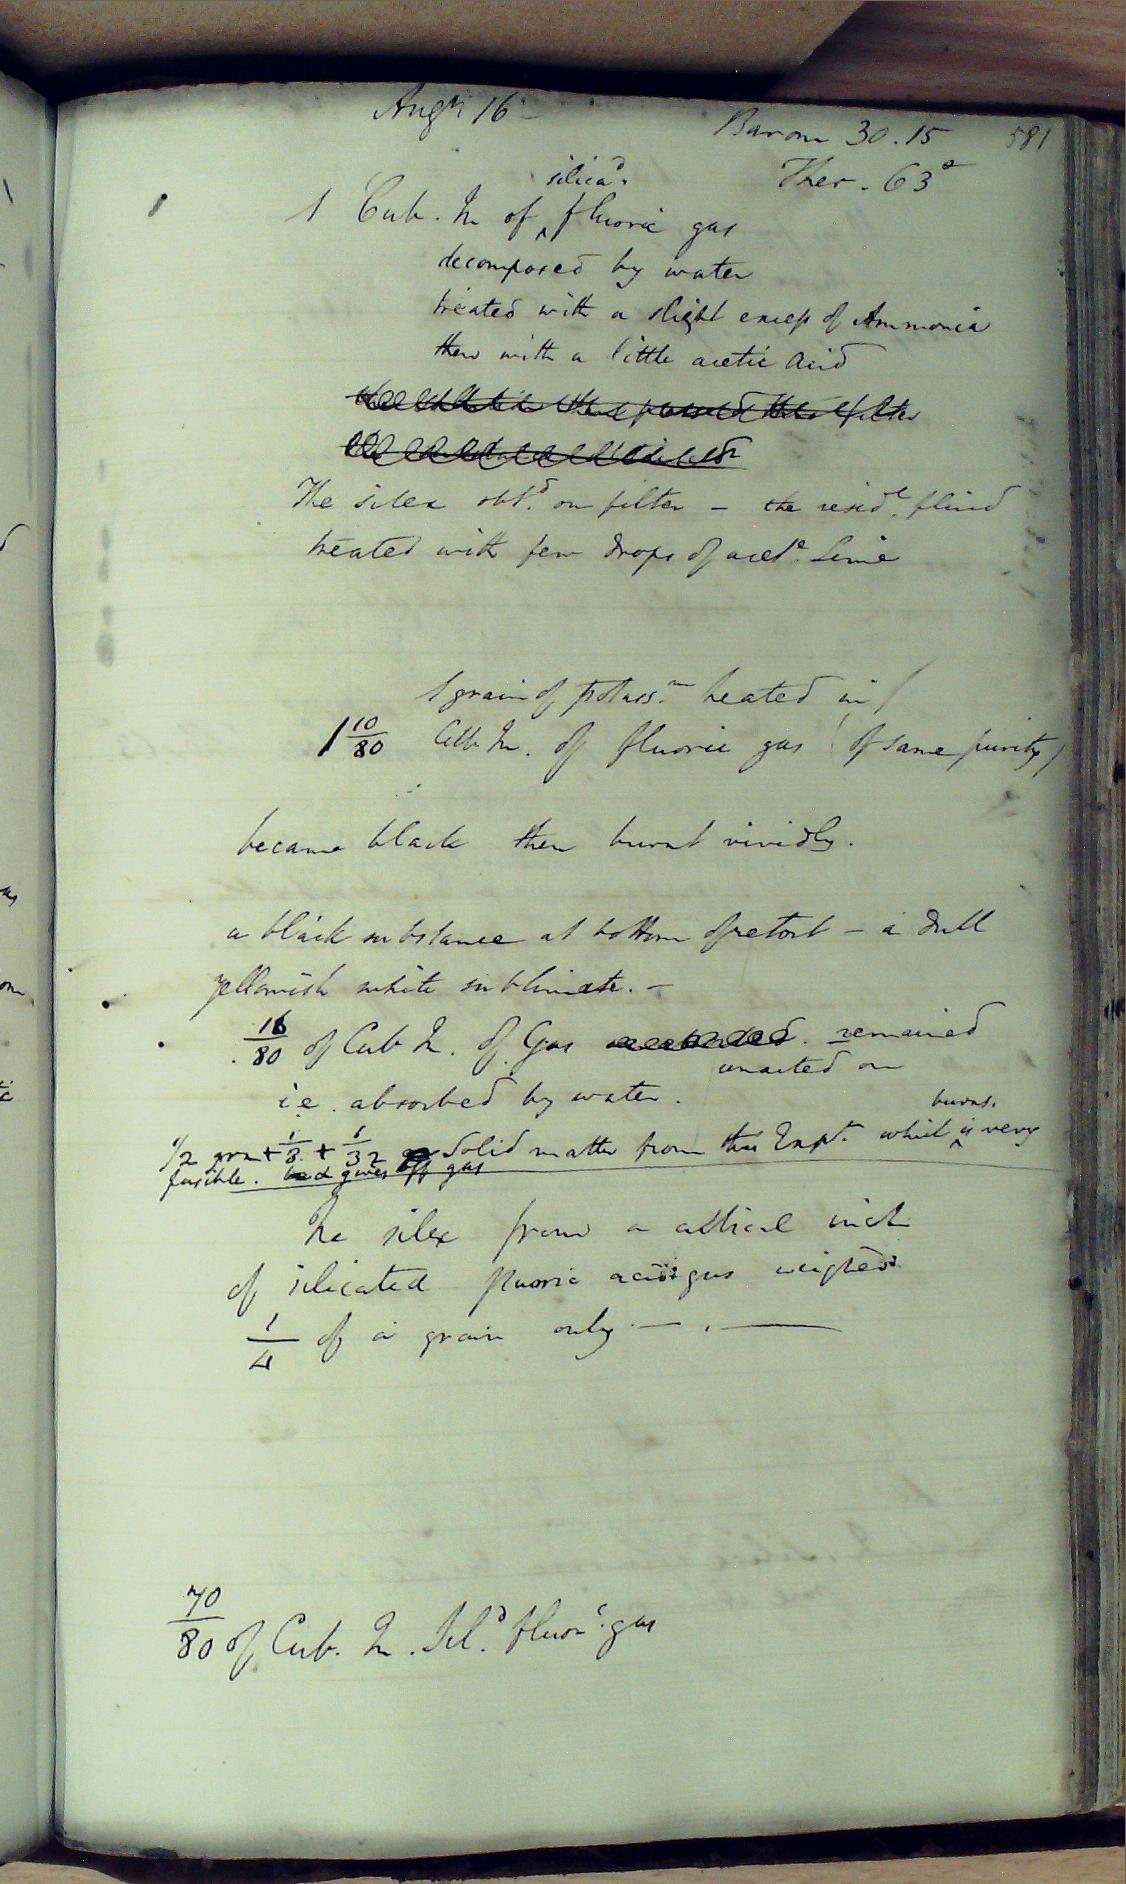 Augst 16
Barom 30.15 581
Ther. 63°
silicad.
1 Cub. In of ^ fluoric gas
decomposed by water
treated with a slight excess of Ammonia
then with a little acetic acid
The silex obtd. on filter – the residl. fluid
treated with few drops of acete. Lime
1 grain of Potassm heated in
1 10/80 Cub In. of fluoric gas (of same purity)
became black then burnt vividly.
a black substance at bottom of retort – a dull
yellowish white sublimate. –
16/80 of Cub In. of Gas remained
unacted on
i.e. absorbed by water.
burns.
1/2 grn + 1/8 + 1/32 Solid matter from this Expt. which ^ is very
fusible. and gives off gas
The silex from a cubical inch
of silicated fluoric acid gas weighed
1/4 of a grain only — . —
70/80 of Cub. In. Sild. fluorc. gas